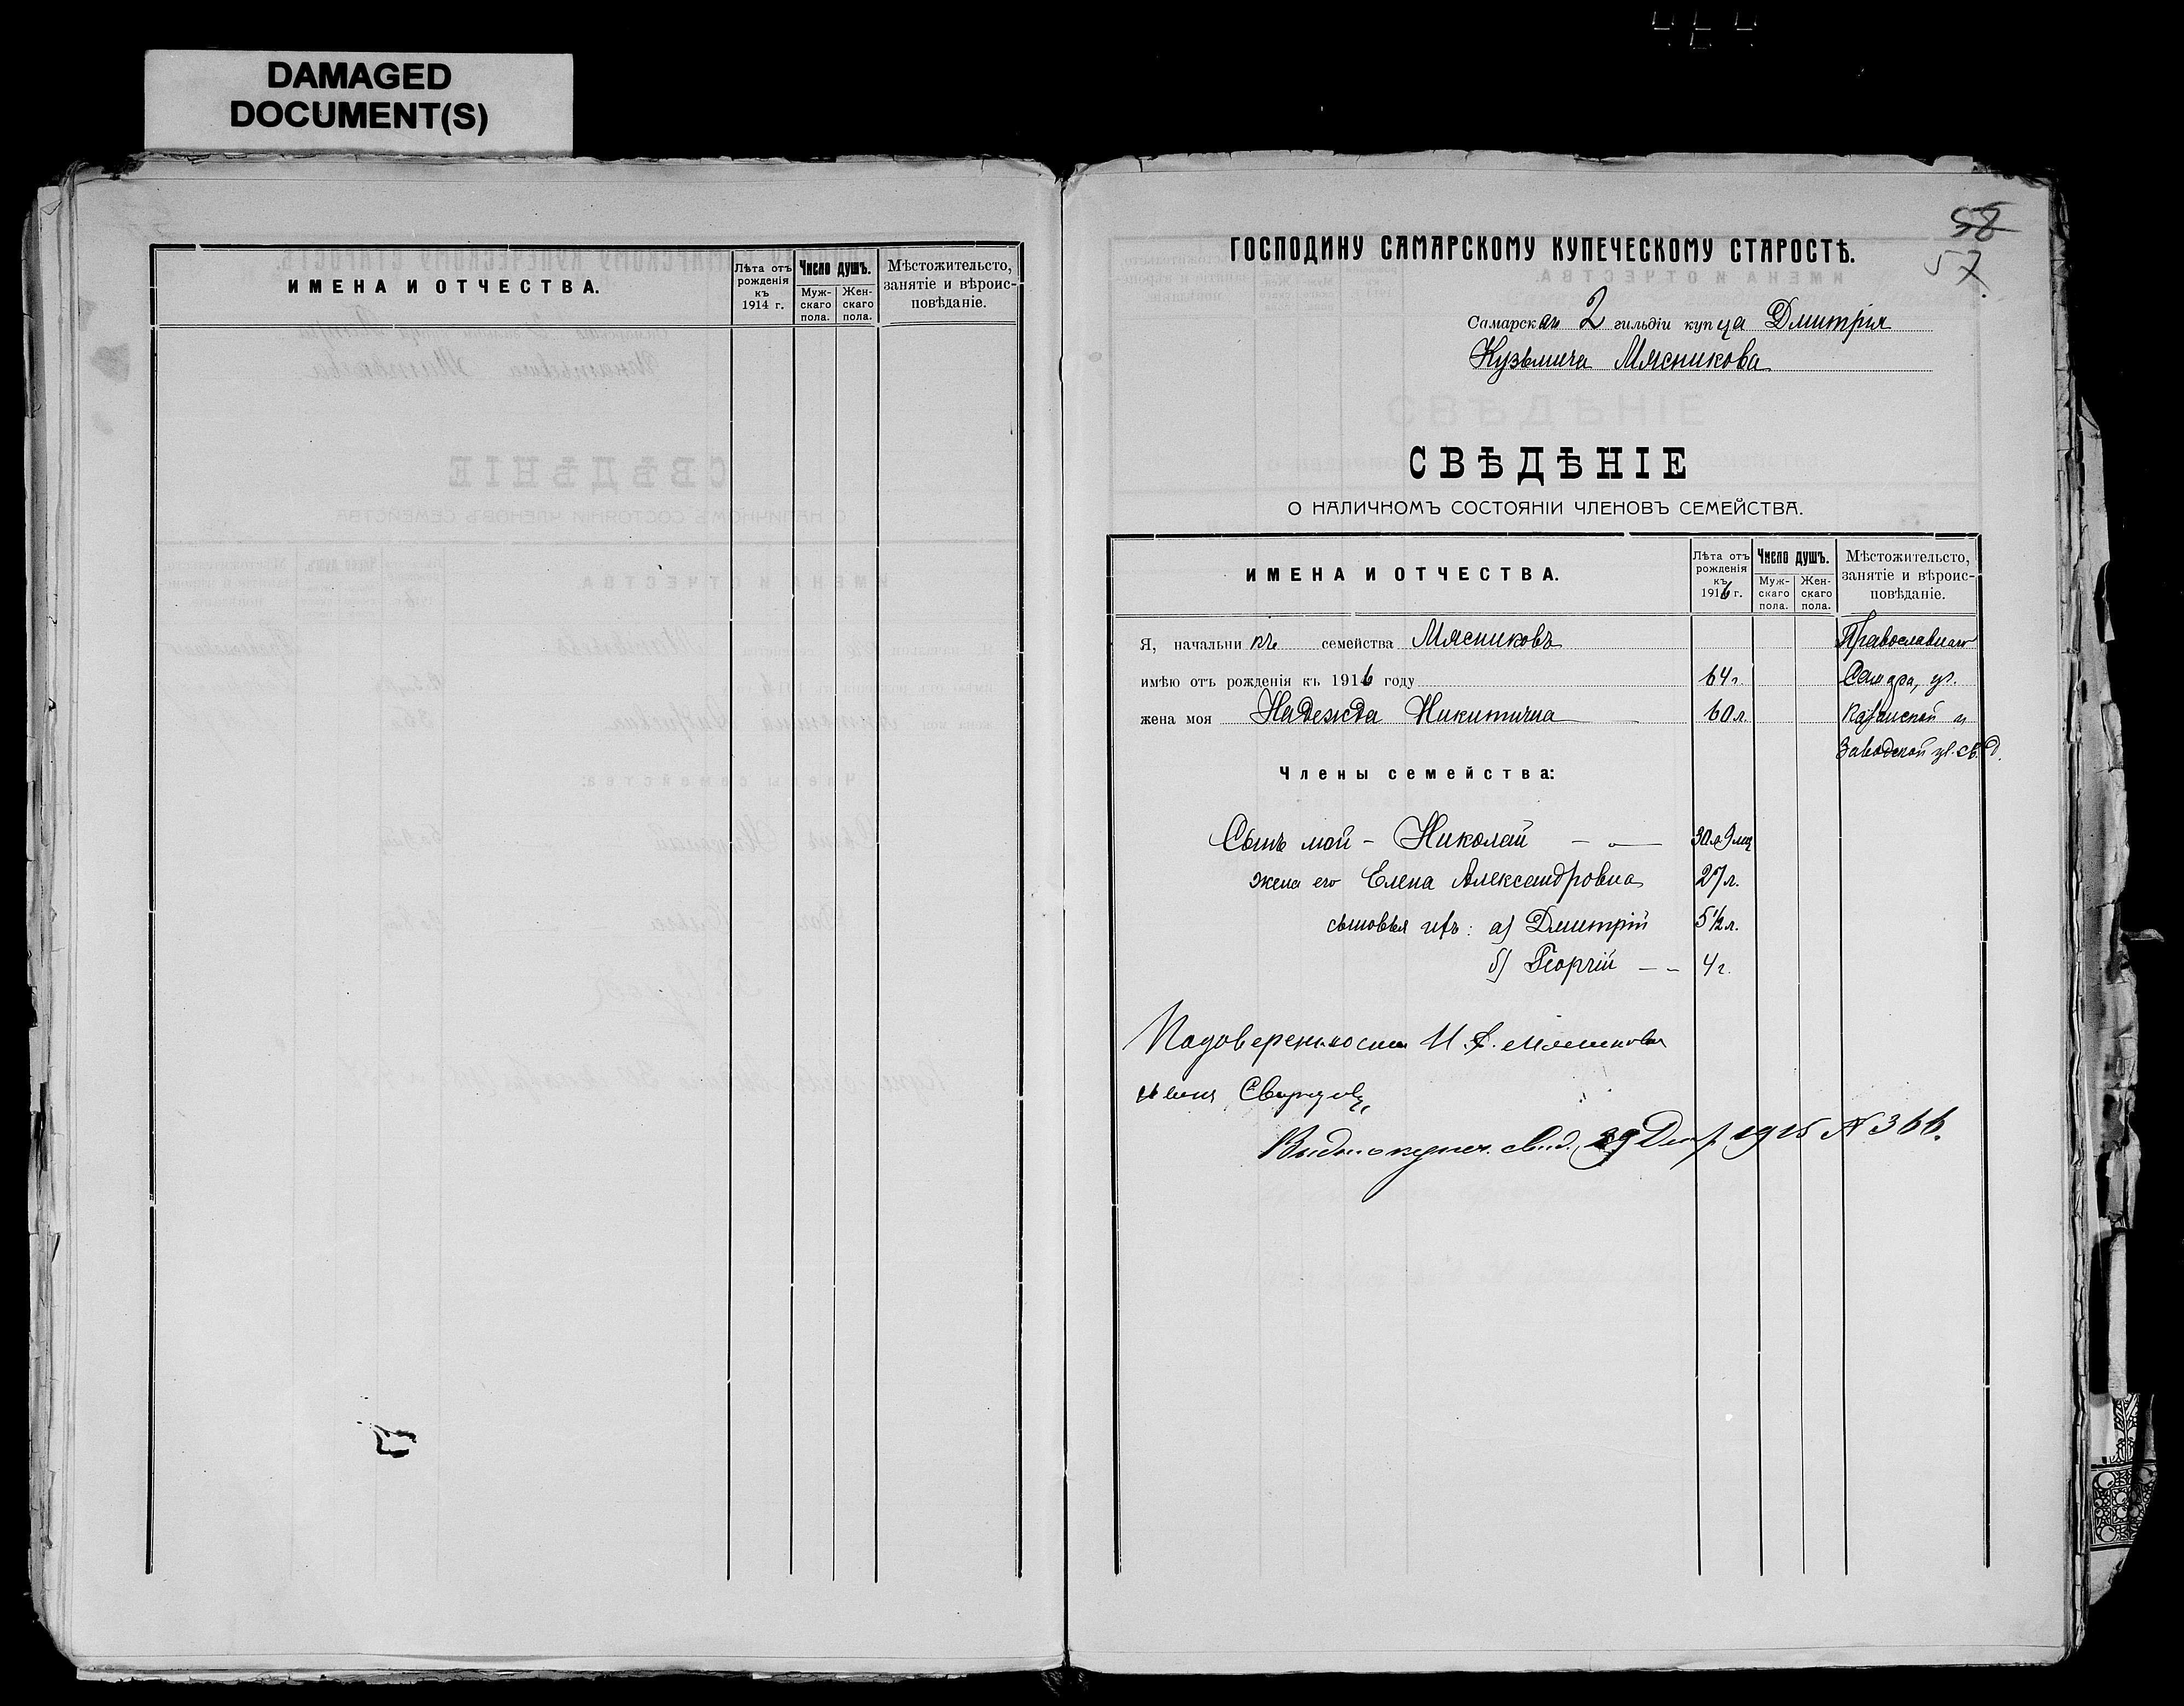 DAMAGED
DOCUMENT(S)
ИМЕНА И ОТЧЕСТВА.
Лѣта отъ рожденія къ 1914 г.
Число душъ.
Муж-скаго пола.
Жен-скаго пола.
Мѣстожительсто, занятіе и вѣроис-повѣданіе.
58
57.
ГОСПОДИНУ САМАРСКОМУ КУПЕЧЕСКОМУ СТАРОСТѢ.
Самарскаго 2 гильдіи купца Дмитрія
Кузьмича Мясникова
СВѢДѢНІЕ
О НАЛИЧНОМЪ СОСТОЯНІИ ЧЛЕНОВЪ СЕМЕЙСТВА.
ИМЕНА И ОТЧЕСТВА.
Лѣта отъ рожденія къ 1916 г.
Число душъ.
Муж-скаго пола.
Жен-скаго пола.
Мѣстожительсто, занятіе и вѣроис-повѣданіе.
Я, начальникъ семейства Мясниковъ Православнаго
имѣю отъ рожденія къ 1916 году 64 г. Самара, уг.
жена моя Надежда Никитична 60 л. Казанской и
Заводской ул. св. д.
Члены семейства:
Сынъ мой - Николай 30 л. 9 мц
жена его Елена Александровна 27 л.
сыновья ихъ: а) Дмитрій 5 1/2 л.
б) Георгій 4 г.
По доверенности Мясникова
29 Дек. 1915 N 366.